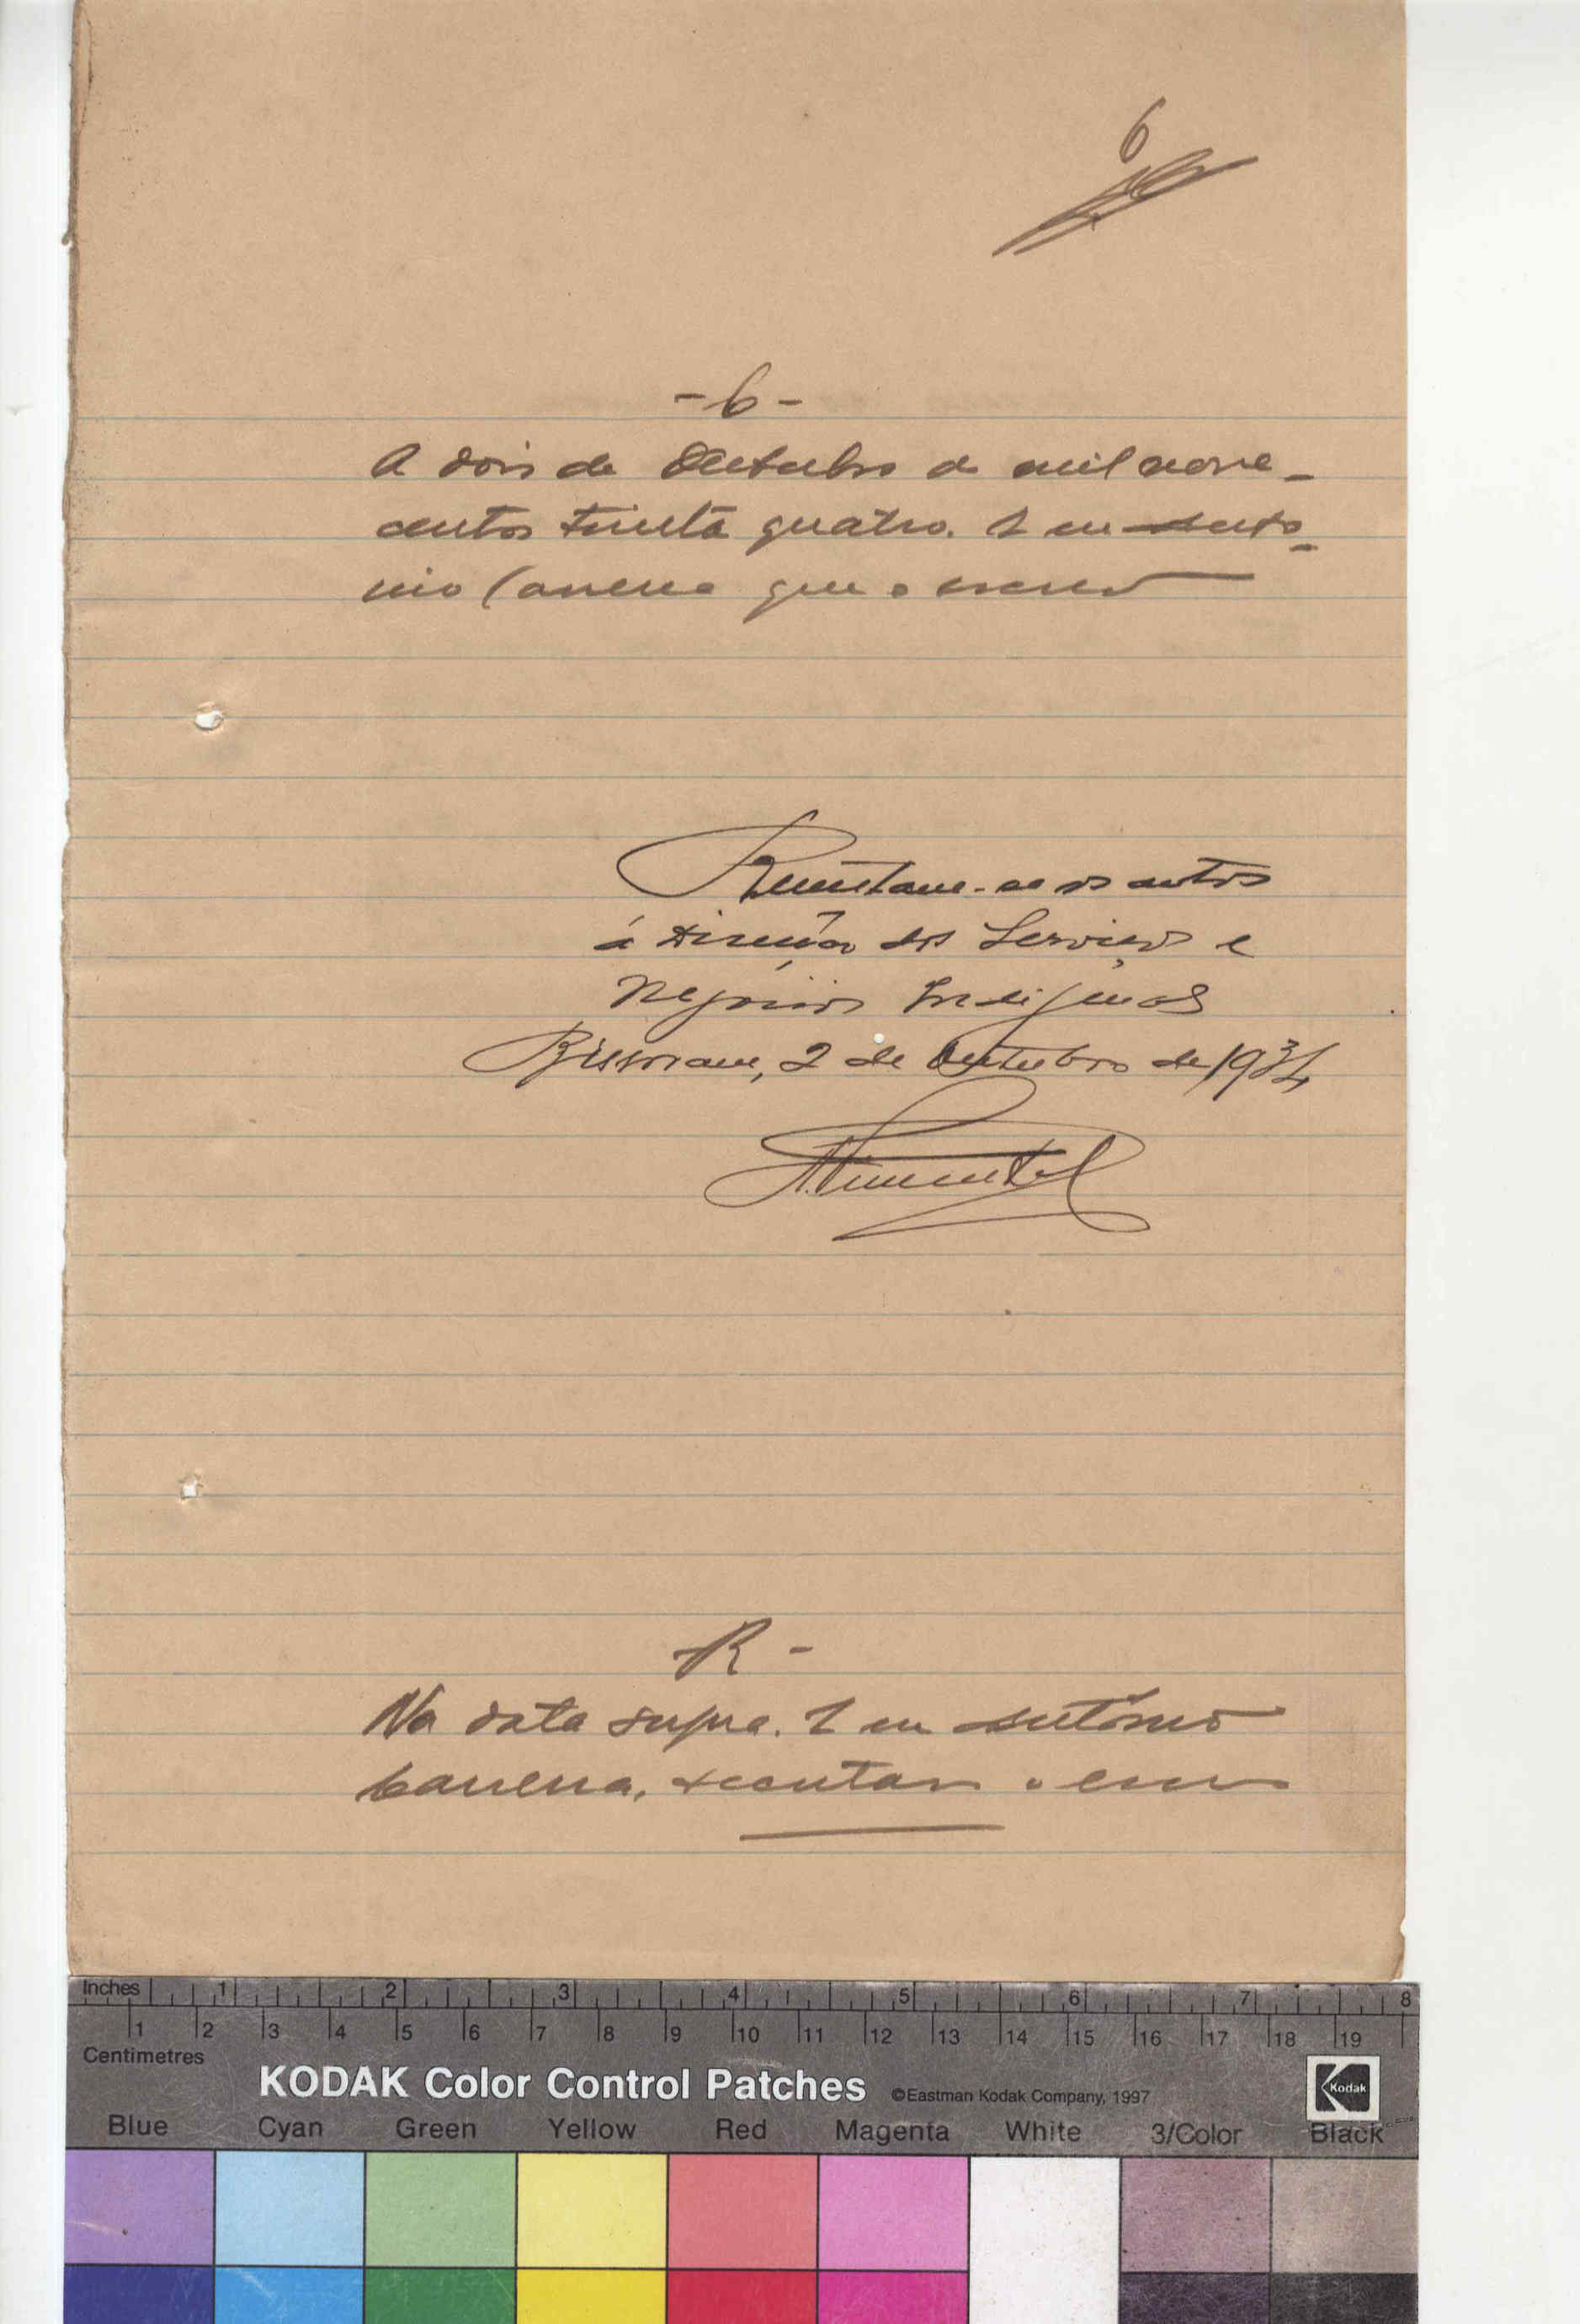 6
- 6 -
A dois de Outubro de mil nove-
centos trinta quatro. E eu Anto-
nio Carreira que o escrevo
Remetam-se os autos
á Direcção dos Serviços e
Negócios Indígenas
Bissoram, 2 de Outubro de 1934
Pimentel
R -
Na data supra. E eu António
Carreira, o escrevo
Inches 1 2 3 4 5 6 7 8
1 2 3 4 5 6 7 8 9 10 11 12 13 14 15 16 17 18 19
Centimetres
KODAK Color Control Patches ©Eastman Kodak Company, 1997 Kodak
Blue Cyan Green Yellow Red Magenta White 3/Color Black